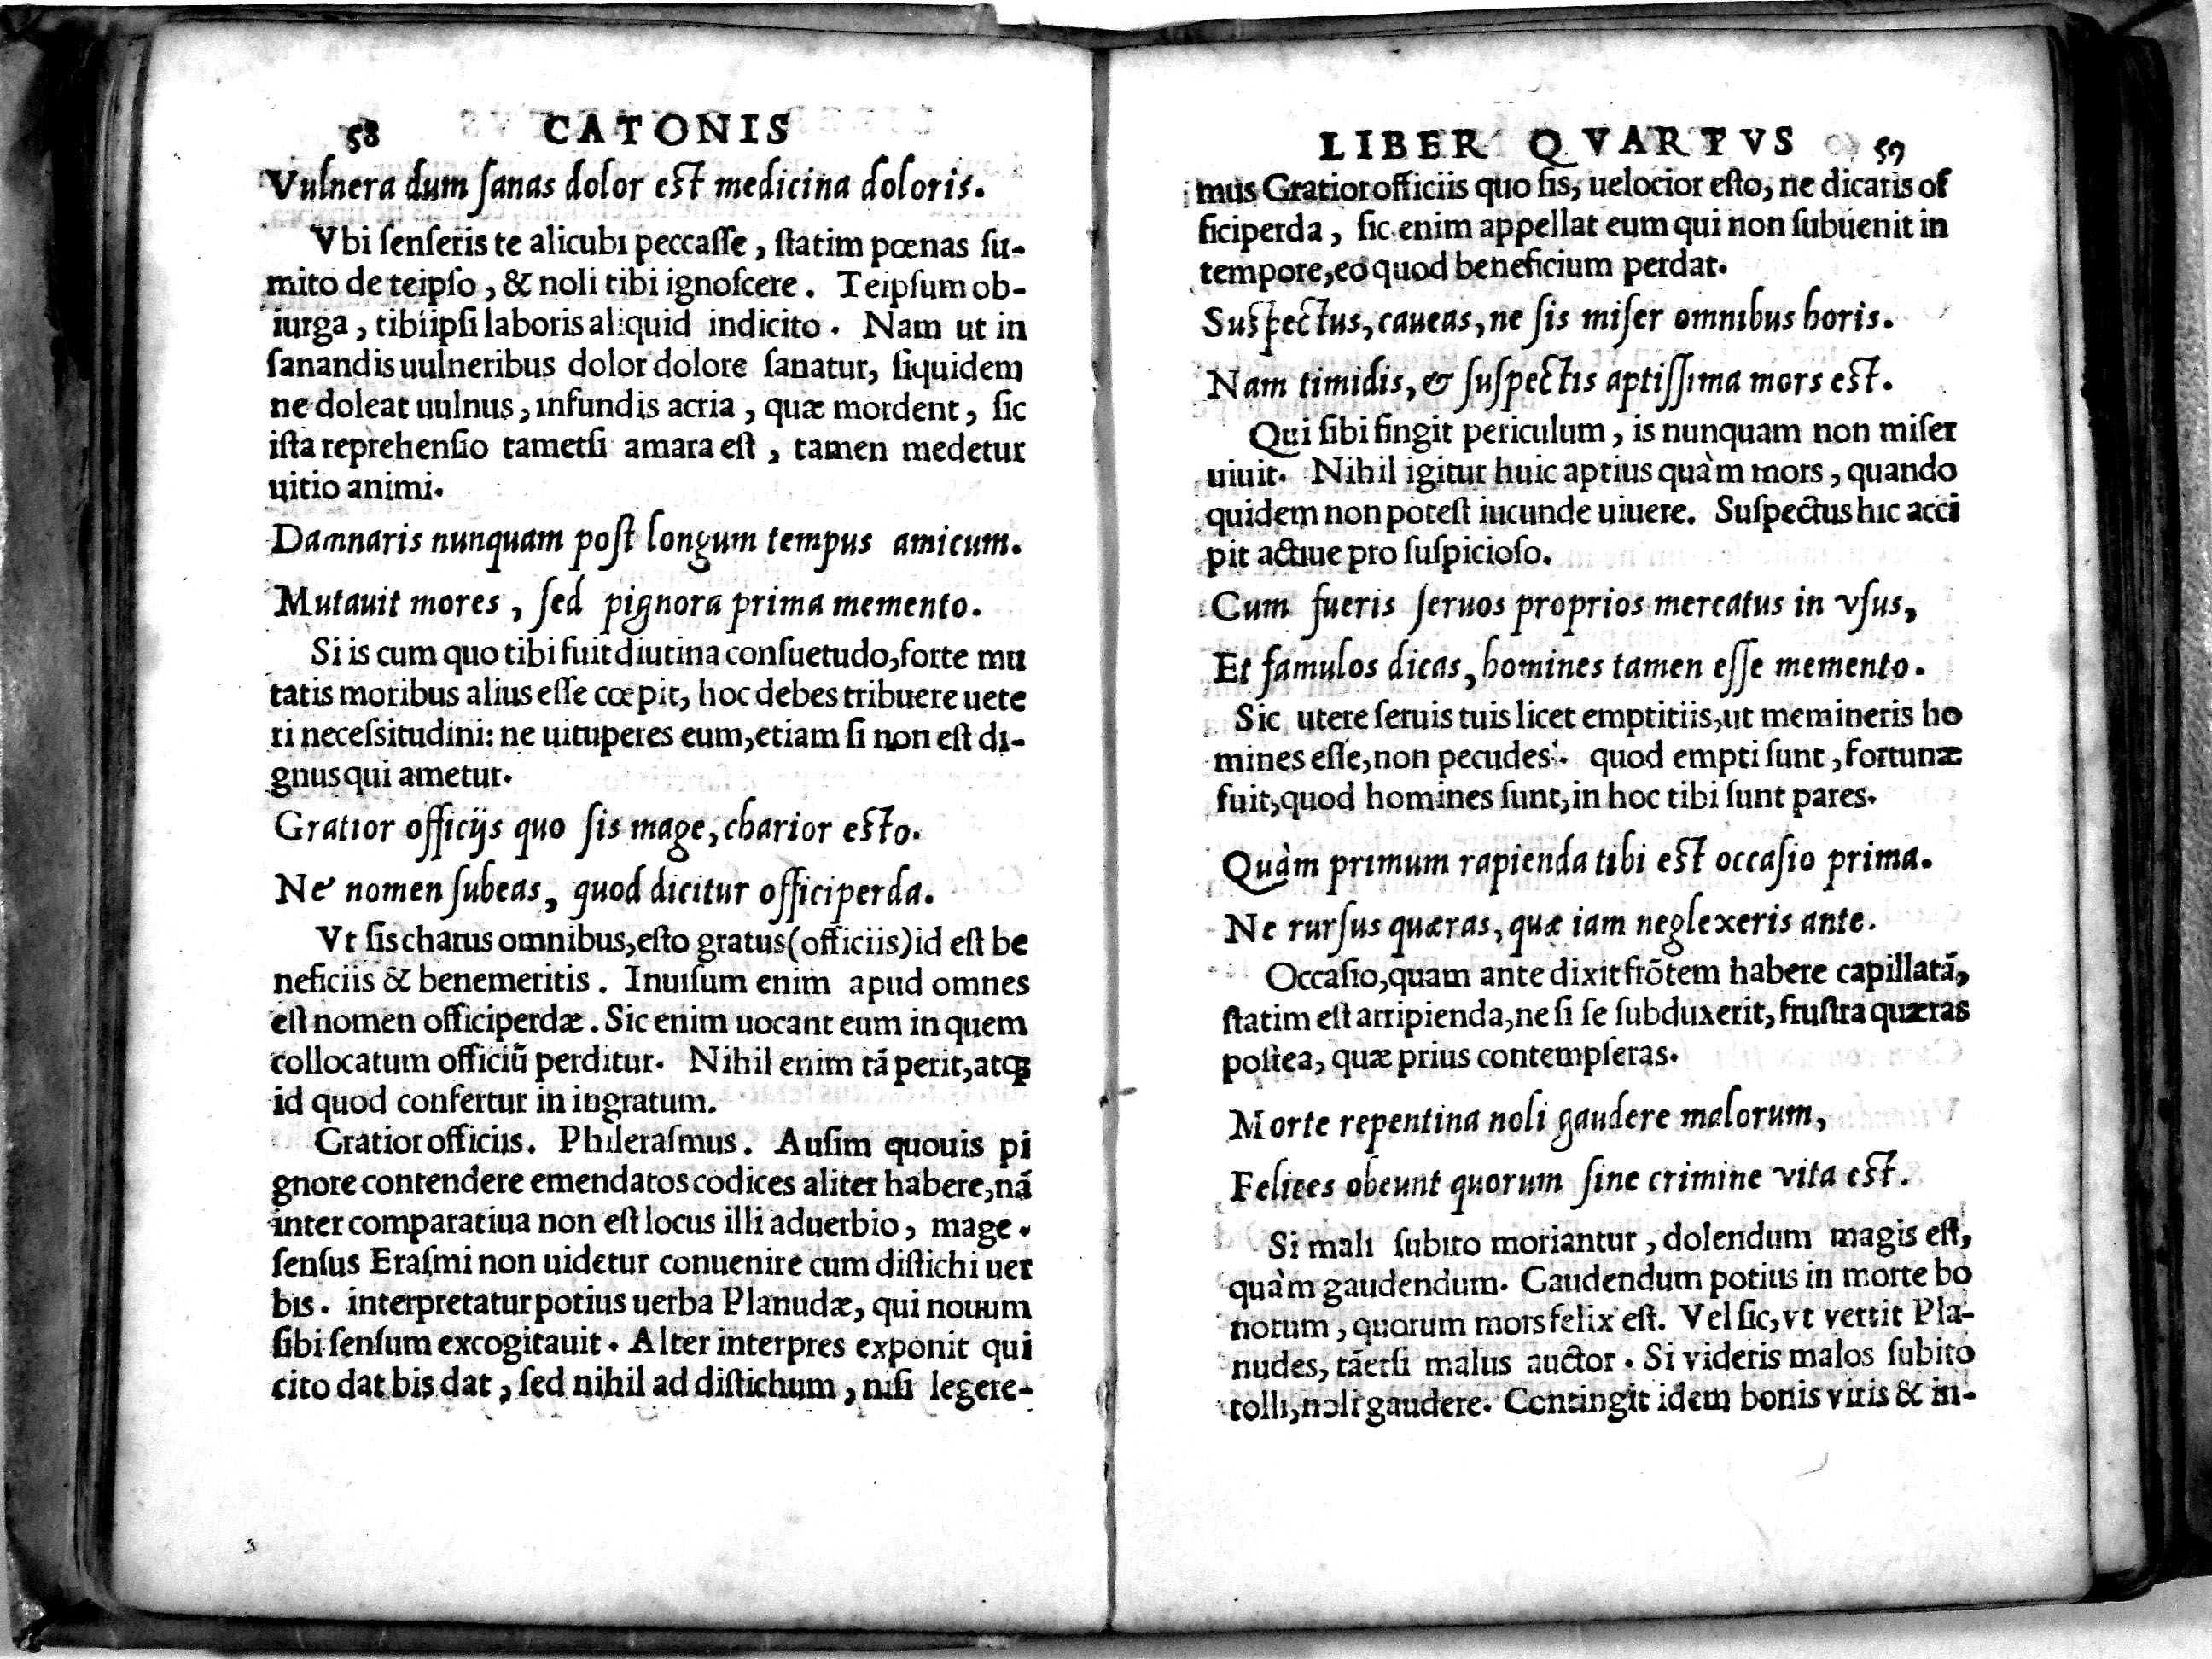 58 CATONIS
Vulnera dum ſanas dolor eſt medicina doloris.
Vbi ſenſeris te alicubi peccaſſe, ſtatim pœnas ſu-
mito de teipſo, & noli tibi ignoſcere. Teipſum ob-
iurga, tibiipſi laboris aliquid indicito. Nam ut in
ſanandis uulneribus dolor dolore ſanatur, ſiquidem
ne doleat uulnus, infundis acria, quæ mordent, ſic
iſta reprehenſio tametſi amara eſt, tamen medetur
uitio animi.
Damnaris nunquam poſt longum tempus amicum.
Mutauit mores, ſed pignora prima memento.
Si is cum quo tibi fuit diutina conſuetudo, forte mu
tatis moribus alius eſſe cœpit, hoc debes tribuere uete
ri neceſsitudini: ne uituperes eum, etiam ſi non eſt di-
gnus qui ametur.
Gratior officijs quo ſis mage, charior eſto.
Ne nomen ſubeas, quod dicitur officiperda.
Vt ſis charus omnibus, eſto gratus (officiis) id eſt be
neficiis & benemeritis. Inuiſum enim apud omnes
eſt nomen officiperdæ. Sic enim uocant eum in quem
collocatum officiũ perditur. Nihil enim tã perit, atq;
id quod confertur in ingratum.
Gratior officiis. Phileraſmus. Auſim quouis pi
gnore contendere emendatos codices aliter habere, nã
inter comparatiua non eſt locus illi aduerbio, mage.
ſenſus Eraſmi non uidetur conuenire cum diſtichi uer
bis. interpretatur potius uerba Planudæ, qui nouum
ſibi ſenſum excogitauit. Alter interpres exponit qui
cito dat bis dat, ſed nihil ad diſtichum, niſi legere-
LIBER QVARTVS 59
mus Gratior officiis quo ſis, uelocior eſto, ne dicaris of
ficiperda, ſic enim appellat eum qui non ſubuenit in
tempore, eo quod beneficium perdat.
Suſpectus, caueas, ne ſis miſer omnibus horis.
Nam timidis, & ſuſpectis aptiſſima mors eſt.
Qui ſibi fingit periculum, is nunquam non miſer
uiuit. Nihil igitur huic aptius quàm mors, quando
quidem non poteſt iucunde uiuere. Suſpectus hic acci
pit actiue pro ſuſpicioſo.
Cum fueris ſeruos proprios mercatus in vſus,
Et famulos dicas, homines tamen eſſe memento.
Sic utere ſeruis tuis licet emptitiis, ut memineris ho
mines eſſe, non pecudes. quod empti ſunt, fortunæ
fuit, quod homines ſunt, in hoc tibi ſunt pares.
Quàm primum rapienda tibi eſt occaſio prima.
Ne rurſus quæras, quæ iam neglexeris ante.
Occaſio, quam ante dixit frõtem habere capillatã,
ſtatim eſt arripienda, ne ſi ſe ſubduxerit, fruſtra quæras
poſtea, quæ prius contempſeras.
Morte repentina noli gaudere malorum,
Felices obeunt quorum ſine crimine vita eſt.
Si mali ſubito moriantur, dolendum magis eſt,
quàm gaudendum. Gaudendum potius in morte bo
norum, quorum mors felix eſt. Vel ſic, vt vertit Pla-
nudes, tãetſi malus auctor. Si videris malos ſubito
tolli, noli gaudere. Contingit idem bonis viris & in-